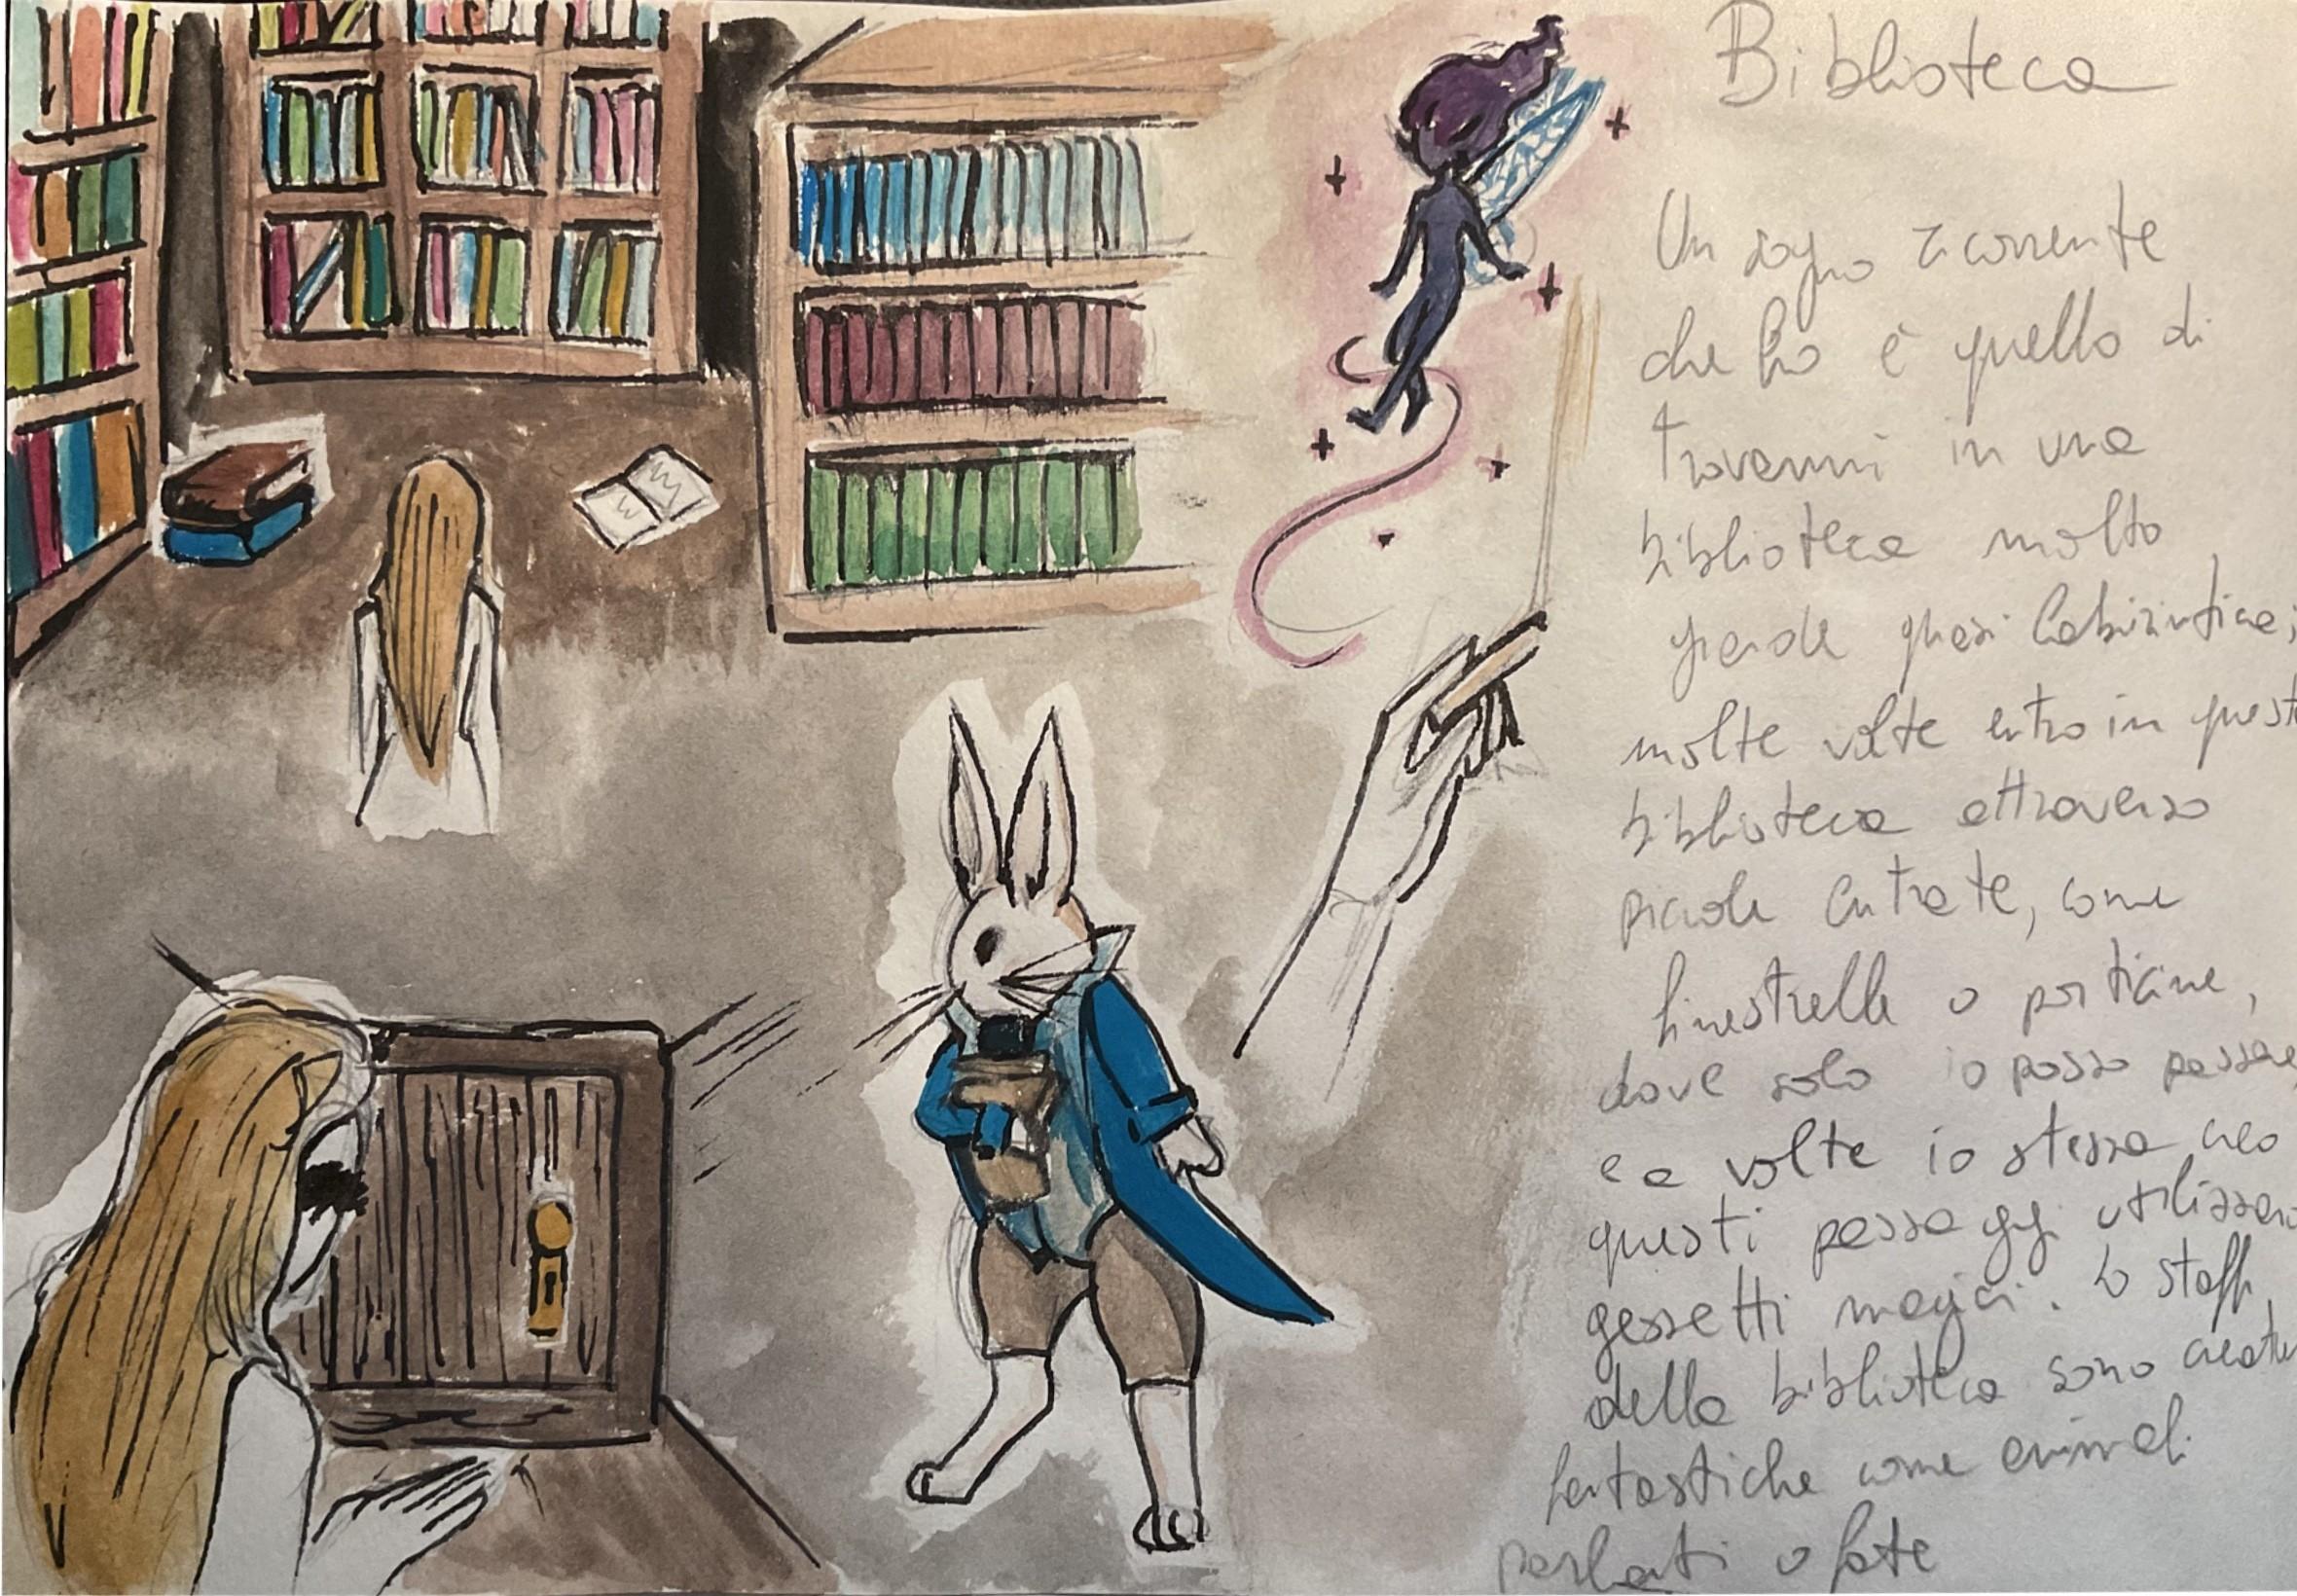 Biblioteca
Un sogno ricorrente
che ho è quello di
trovarmi in una
biblioteca molto
grande quasi labirintica;
molte volte entro in quest
biblioteca attraverso
piccole entrate, come
finestrelle o porticine,
dove solo io posso passare,
e a volte io stessa creo
questi passaggi utilizzan
gessetti magici. Lo staff
della biblioteca sono creatu
fantastiche come animali
parlanti o fate